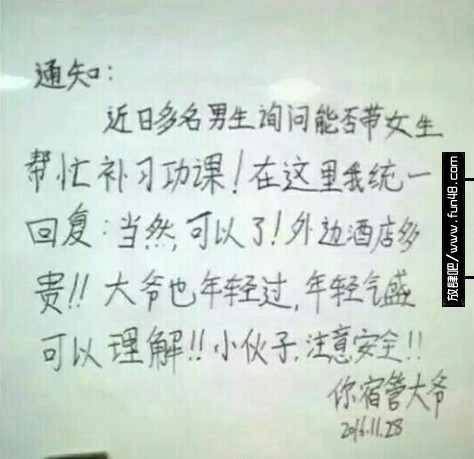 通知:
近日多名男生询问能否带女生
帮忙补习功课!在这里我统一
回复:当然,可以了!外边酒店多
贵!!大爷也年轻过,年轻气盛
可以理解!!小伙子,注意安全!!
你宿管大爷
2016.11.28
放肆吧/www.fun48.com